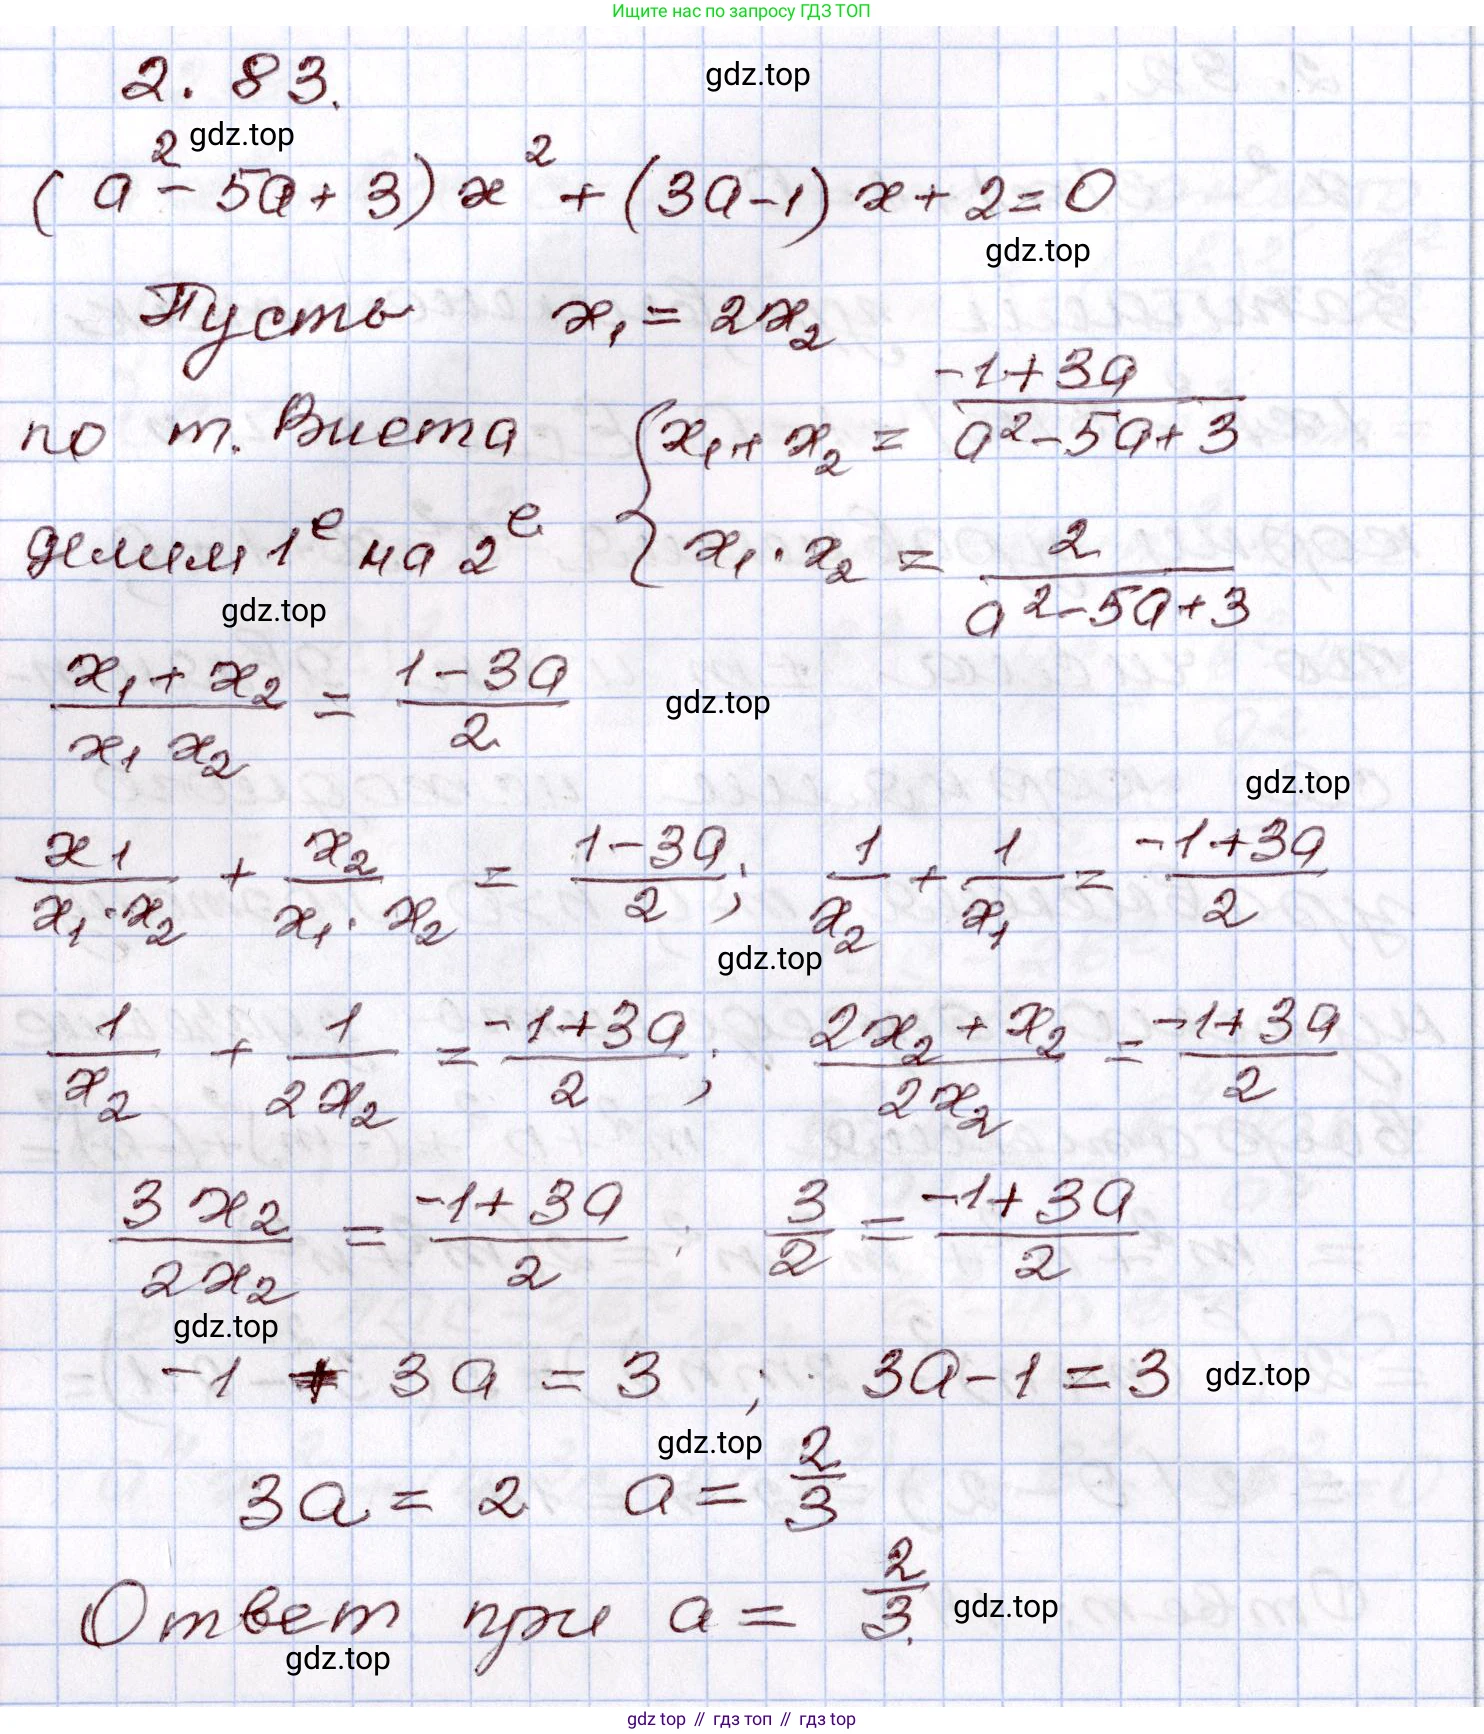 Ищите нас по запросу ГДЗ ТОП
2.83.
gdz.top
gdz.top
(a² - 5a + 3) x² + (3a - 1) x + 2 = 0
gdz.top
Пусть x₁ = 2x₂
по т. Виета { x₁ + x₂ = (-1 + 3a)/(a² - 5a + 3)
делим 1ᵉ на 2ᵉ { x₁ · x₂ = 2/(a² - 5a + 3)
gdz.top
(x₁ + x₂)/(x₁ x₂) = (1 - 3a)/2
gdz.top
gdz.top
x₁/(x₁ · x₂) + x₂/(x₁ · x₂) = (1 - 3a)/2 ; 1/x₂ + 1/x₁ = (-1 + 3a)/2
gdz.top
1/x₂ + 1/(2x₂) = (-1 + 3a)/2 ; (2x₂ + x₂)/(2x₂) = (-1 + 3a)/2
3x₂/(2x₂) = (-1 + 3a)/2 ; 3/2 = (-1 + 3a)/2
gdz.top
-1 + 3a = 3 ; 3a - 1 = 3
gdz.top
gdz.top
3a = 2 a = 2/3
Ответ при a = 2/3.
gdz.top
gdz.top
gdz top // гдз топ // гдз top